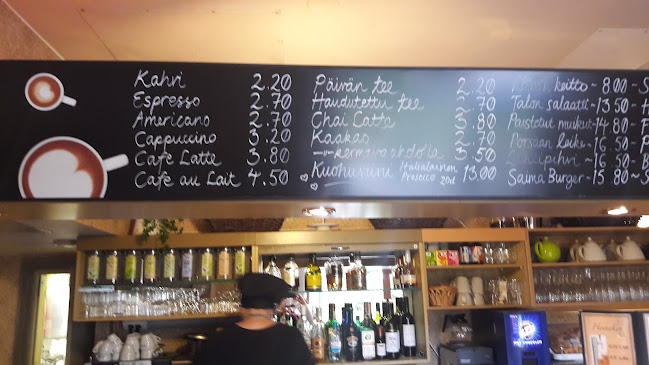 Kahvi 2.20
Espresso 2.70
Americano 2.70
Cappuccino 3.20
Cafe Latte 3.80
Cafe au Lait 4.50
Päivän tee 2.20
Haudutettu tee 2.70
Chai Latte 3.80
Kaakao 2.70
kermavaahdolla 3.50
Kuohuviini Prosecco 20cl 13.00
keitto - 8.00
Talon salaatti - 13.50
Paistetut muikut - 14.80
Porsaan leike - 16.50
16.50
Saima Burger - 15.80